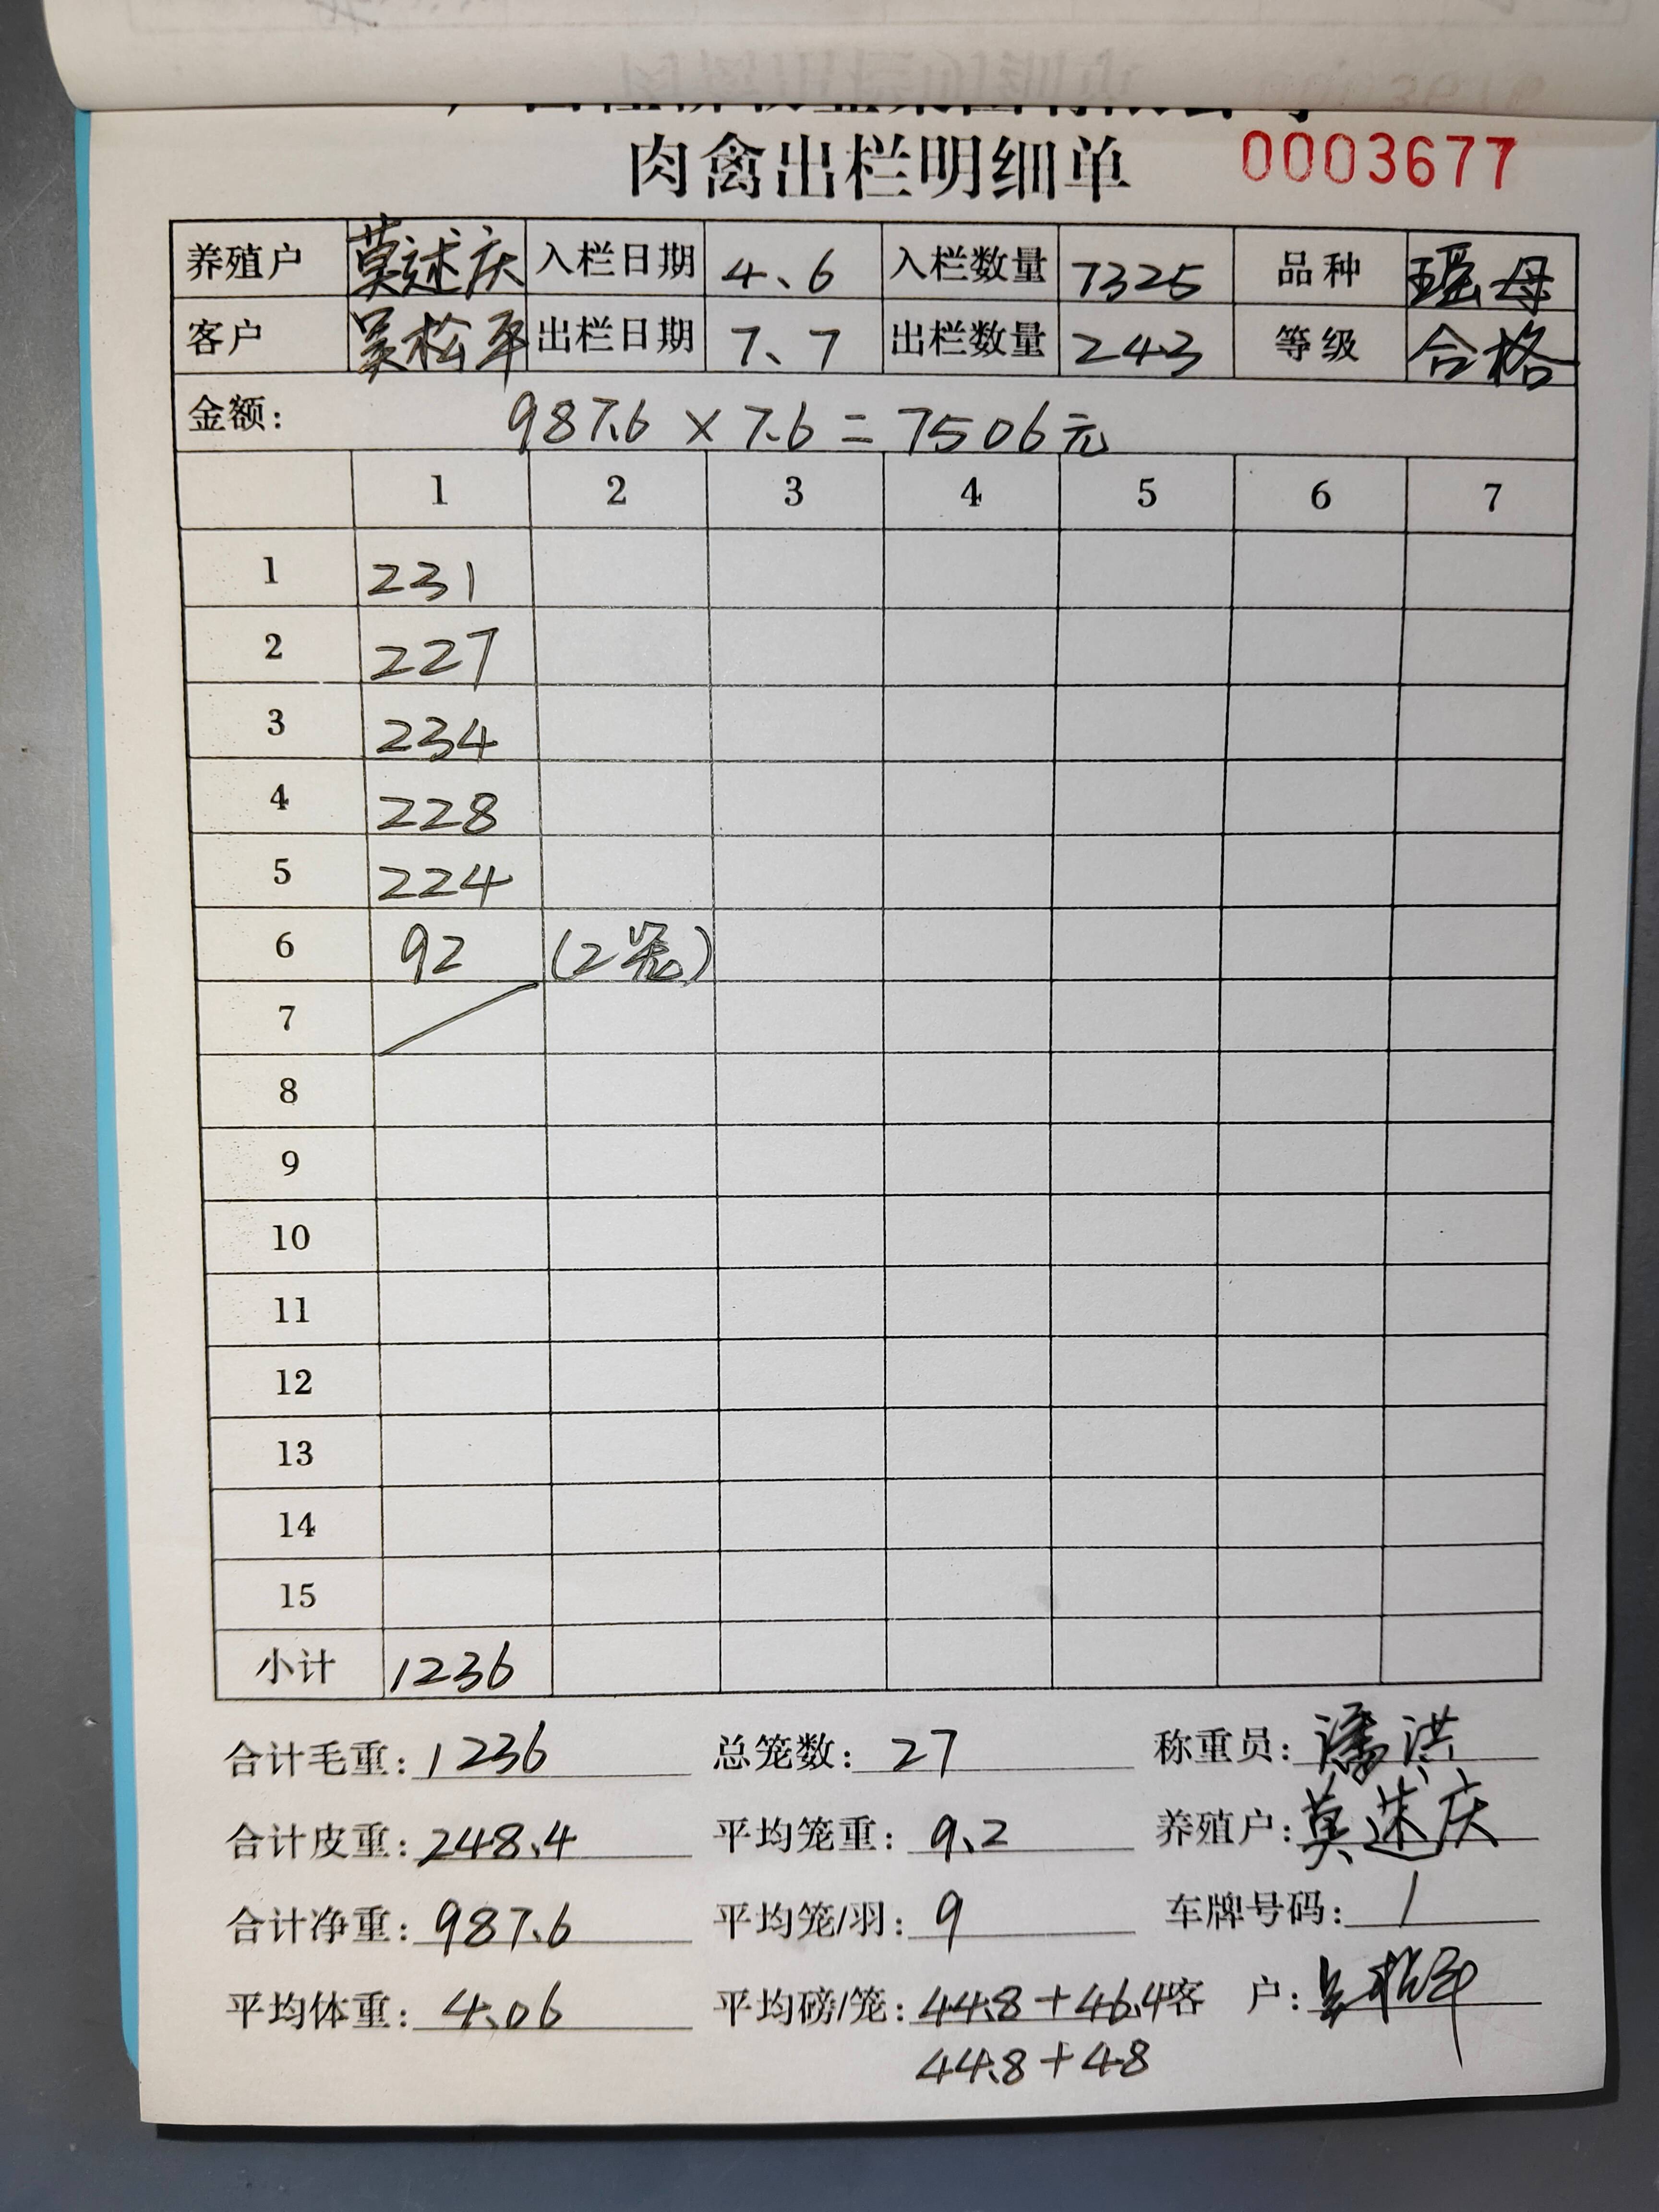 肉禽出栏明细单 0003677
养殖户 莫述庆 入栏日期 4、6 入栏数量 7325 品种 瑶母
客户 吴松平 出栏日期 7、7 出栏数量 243 等级 合格
金额: 987.6 × 7.6 = 7506元
1 2 3 4 5 6 7
1 231
2 227
3 234
4 228
5 224
6 92 (2笼)
7
8
9
10
11
12
13
14
15
小计 1236
合计毛重: 1236 总笼数: 27 称重员: 潘洪
合计皮重: 248.4 平均笼重: 9.2 养殖户: 莫述庆
合计净重: 987.6 平均笼/羽: 9 车牌号码: 1
平均体重: 4.06 平均磅/笼: 44.8+46.4 客 户: 吴松平
44.8+48